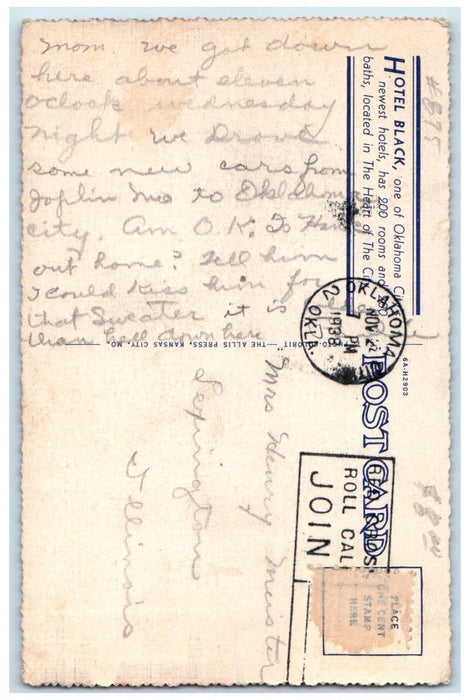 Mom. we got down
here about eleven
oclock wednesday
night we Drove
some new cars from
Joplin Mo to Oklahoma
city. Am O.K. Is
out home? Tell him
I could Kiss him for
that Sweater it is
than hell down here
Mrs Henry Meister
Lexington
Illinois
#895
HOTEL BLACK, one of Oklahoma
newest hotels, has 200 rooms and
baths, located in The Heart of The
THE ALLIS PRESS, KANSAS CITY, MO.
6A-H2903
POST CARD
OKLAHOMA
NOV 2
PM
1938
OKLA.
2
RED CROSS
ROLL CALL
JOIN
PLACE
ONE CENT
STAMP
HERE